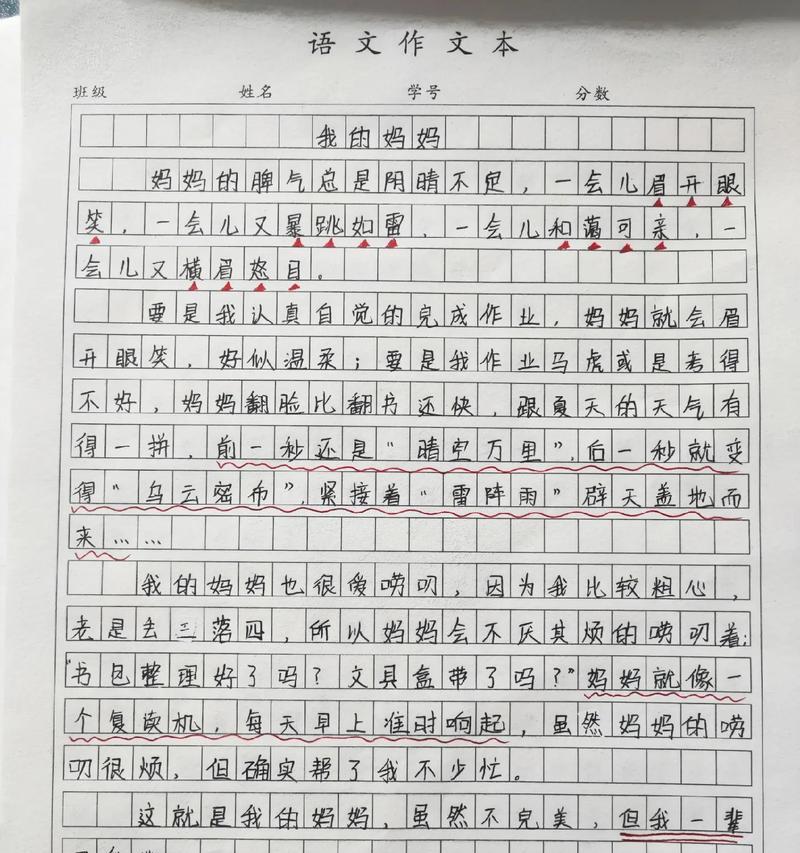 语文作文本
班级 姓名 学号 分数
我的妈妈
妈妈的脾气总是阴晴不定，一会儿眉开眼
笑，一会儿又暴跳如雷，一会儿和蔼可亲，一
会儿又横眉怒目。
要是我认真自觉的完成作业，妈妈就会眉
开眼笑，好似温柔；要是我作业马虎或是考得
不好，妈妈翻脸比翻书还快，跟夏天的天气有
得一拼，前一秒还是“晴空万里”，后一秒就变
得“乌云密布”，紧接着“雷阵雨”辟天盖地而
来……
我的妈妈也很爱唠叨，因为我比较粗心，
老是丢三落四，所以妈妈会不厌其烦的唠叨着：
“书包整理好了吗？文具盒带了吗？”妈妈就像一
个复读机，每天早上准时响起，虽然妈妈的唠
叨很烦，但确实帮了我不少忙。
这就是我的妈妈，虽然不完美，但我一辈